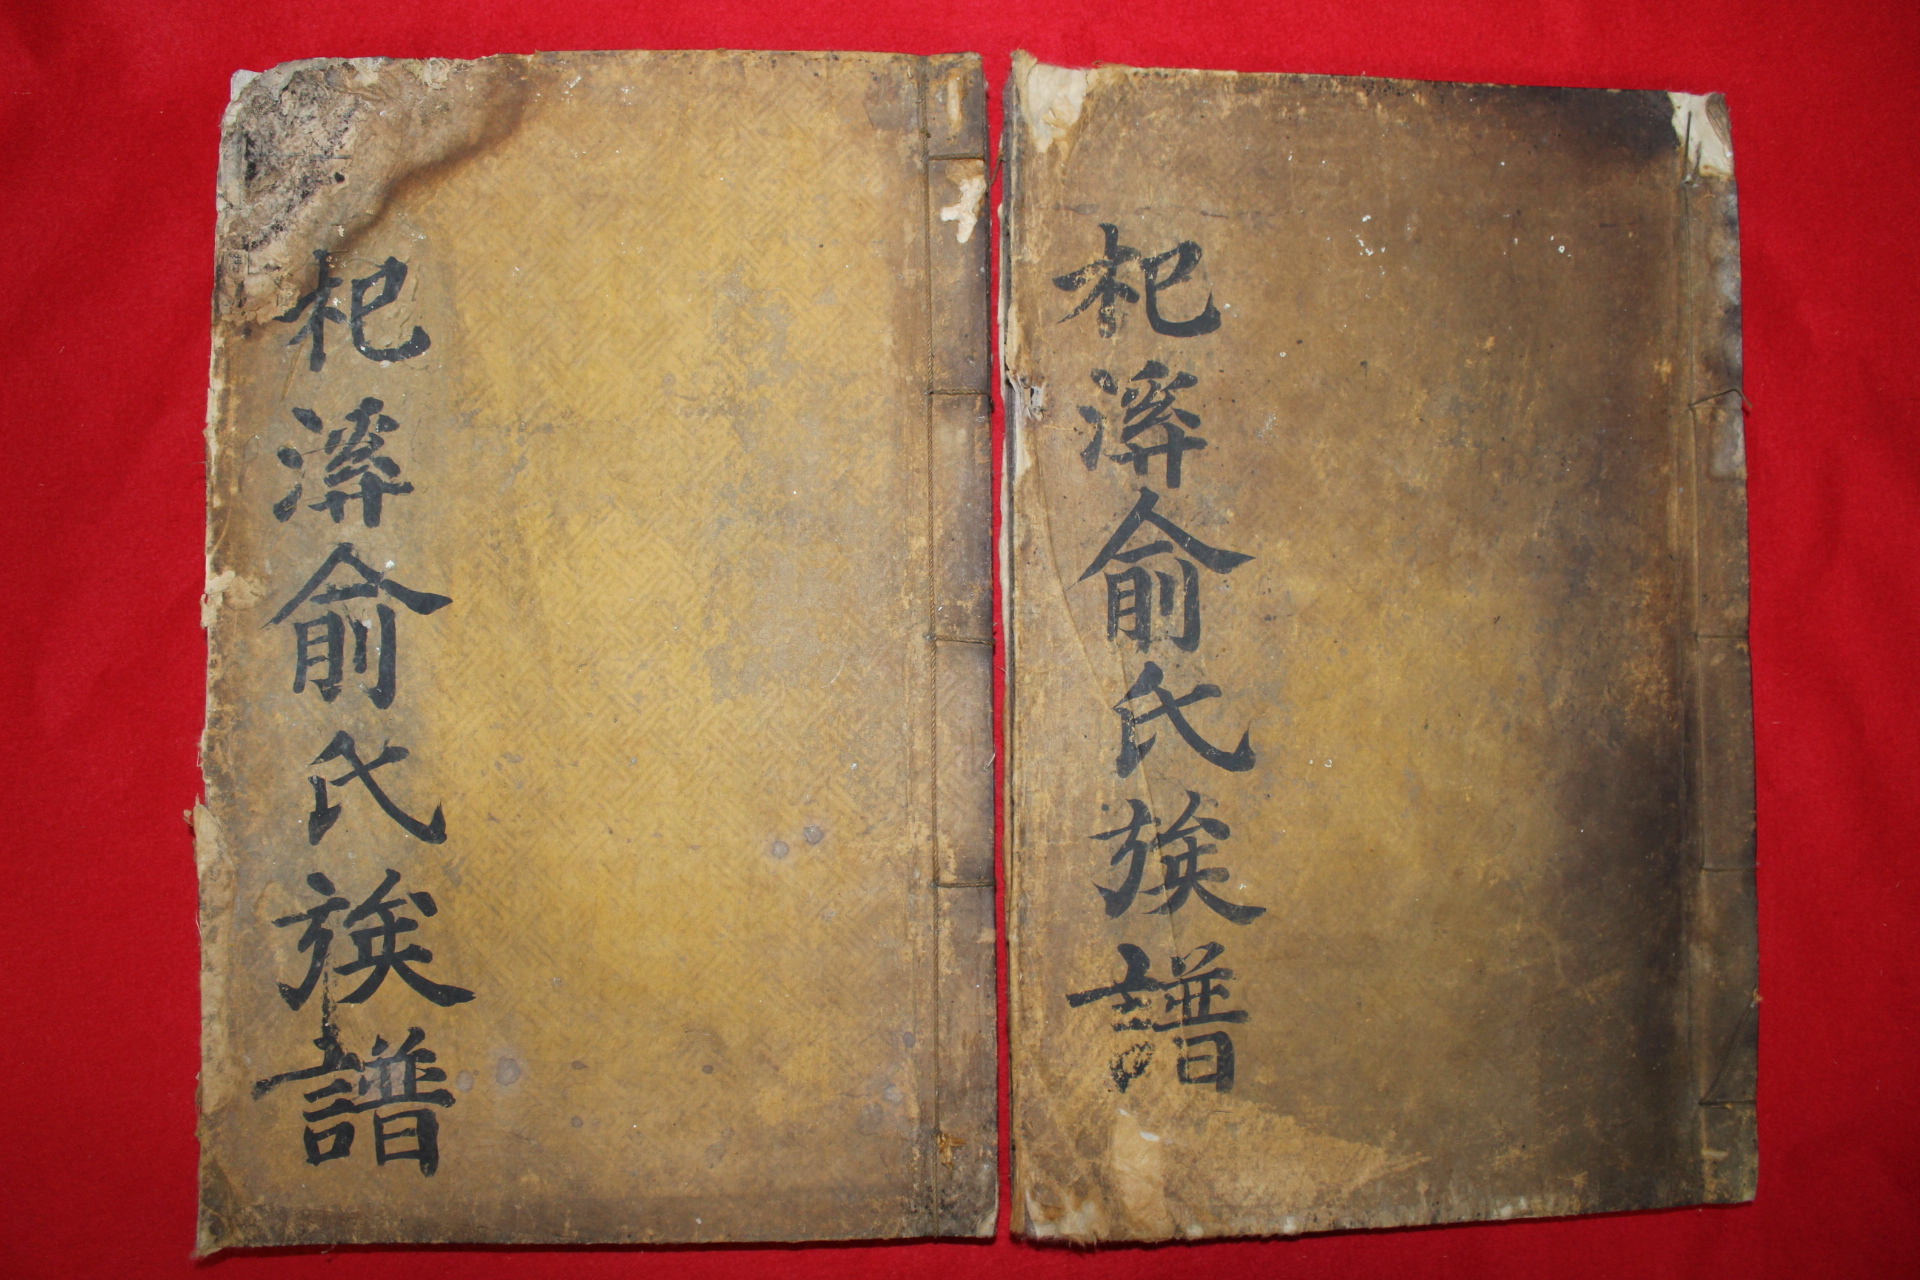 杞溪俞氏族譜
杞溪俞氏族譜